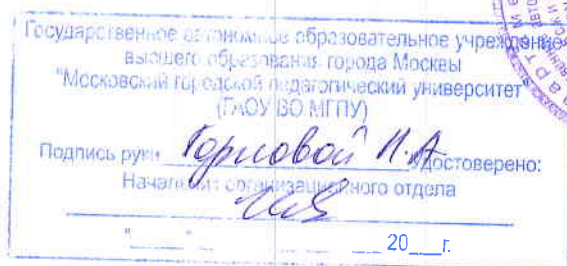 Государственное автономное образовательное учреждение
высшего образования города Москвы
"Московский городской педагогический университет"
(ГАОУ ВО МГПУ)
Подпись руки Горловой Н.А. Удостоверено:
Начальник организационного отдела
"___" ___ 20__г.